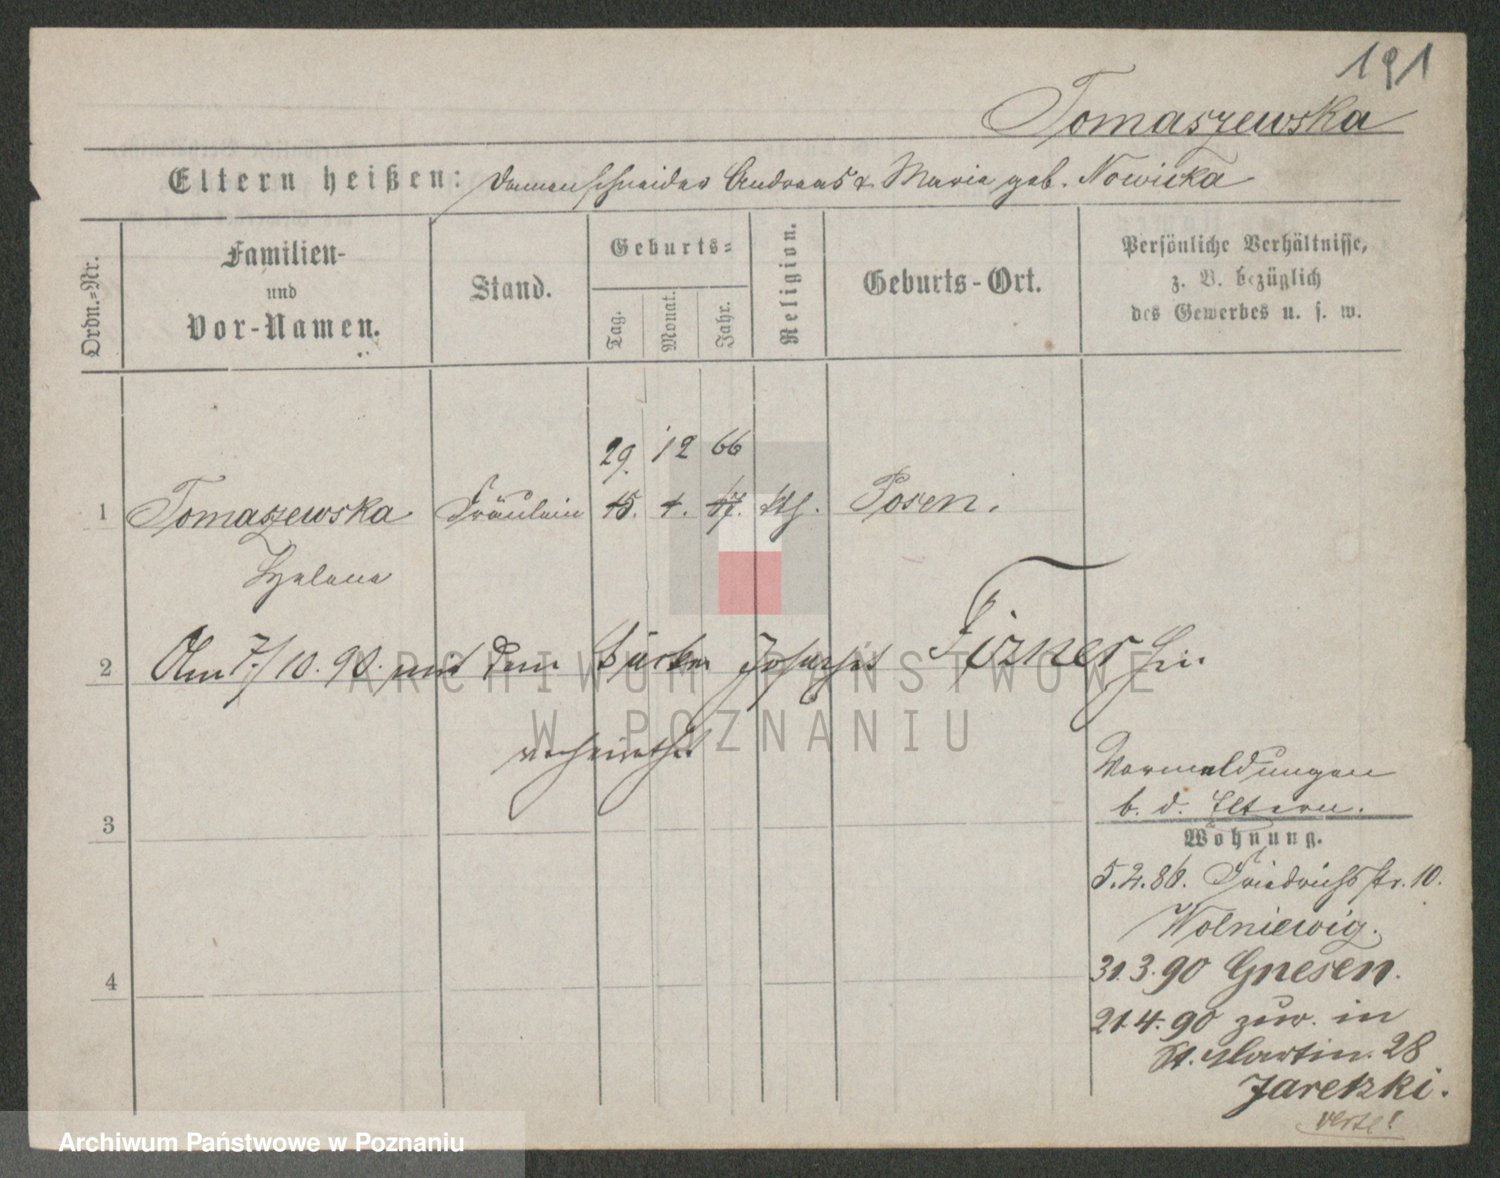 191
Tomaszewska
Eltern heißen: Damenschneider Andreas & Maria geb. Nowicka
Ordn.=Nr.
Familien- und Vor-Namen.
Stand.
Geburts=
Tag.
Monat.
Jahr.
Religion.
Geburts-Ort.
Persönliche Verhältnisse,
z. B. bezüglich
des Gewerbes u. s. w.
29. 12 66
1 Tomaszewska Fräulein 15. 4. 67. kth. Posen.
Helene
2 Am 7./10. 90. mit dem Bäcker Joseph Firner hier
verheirathet
3
Vormeldungen
b. d. Eltern.
Wohnung.
5.2.86. Friedrichstr. 10.
Wolniewig.
4
31.3.90 Gnesen.
21.4.90 zur. in
St. Martin. 28
Jaretzki.
verte!
ARCHIWUM PAŃSTWOWE
W POZNANIU
Archiwum Państwowe w Poznaniu